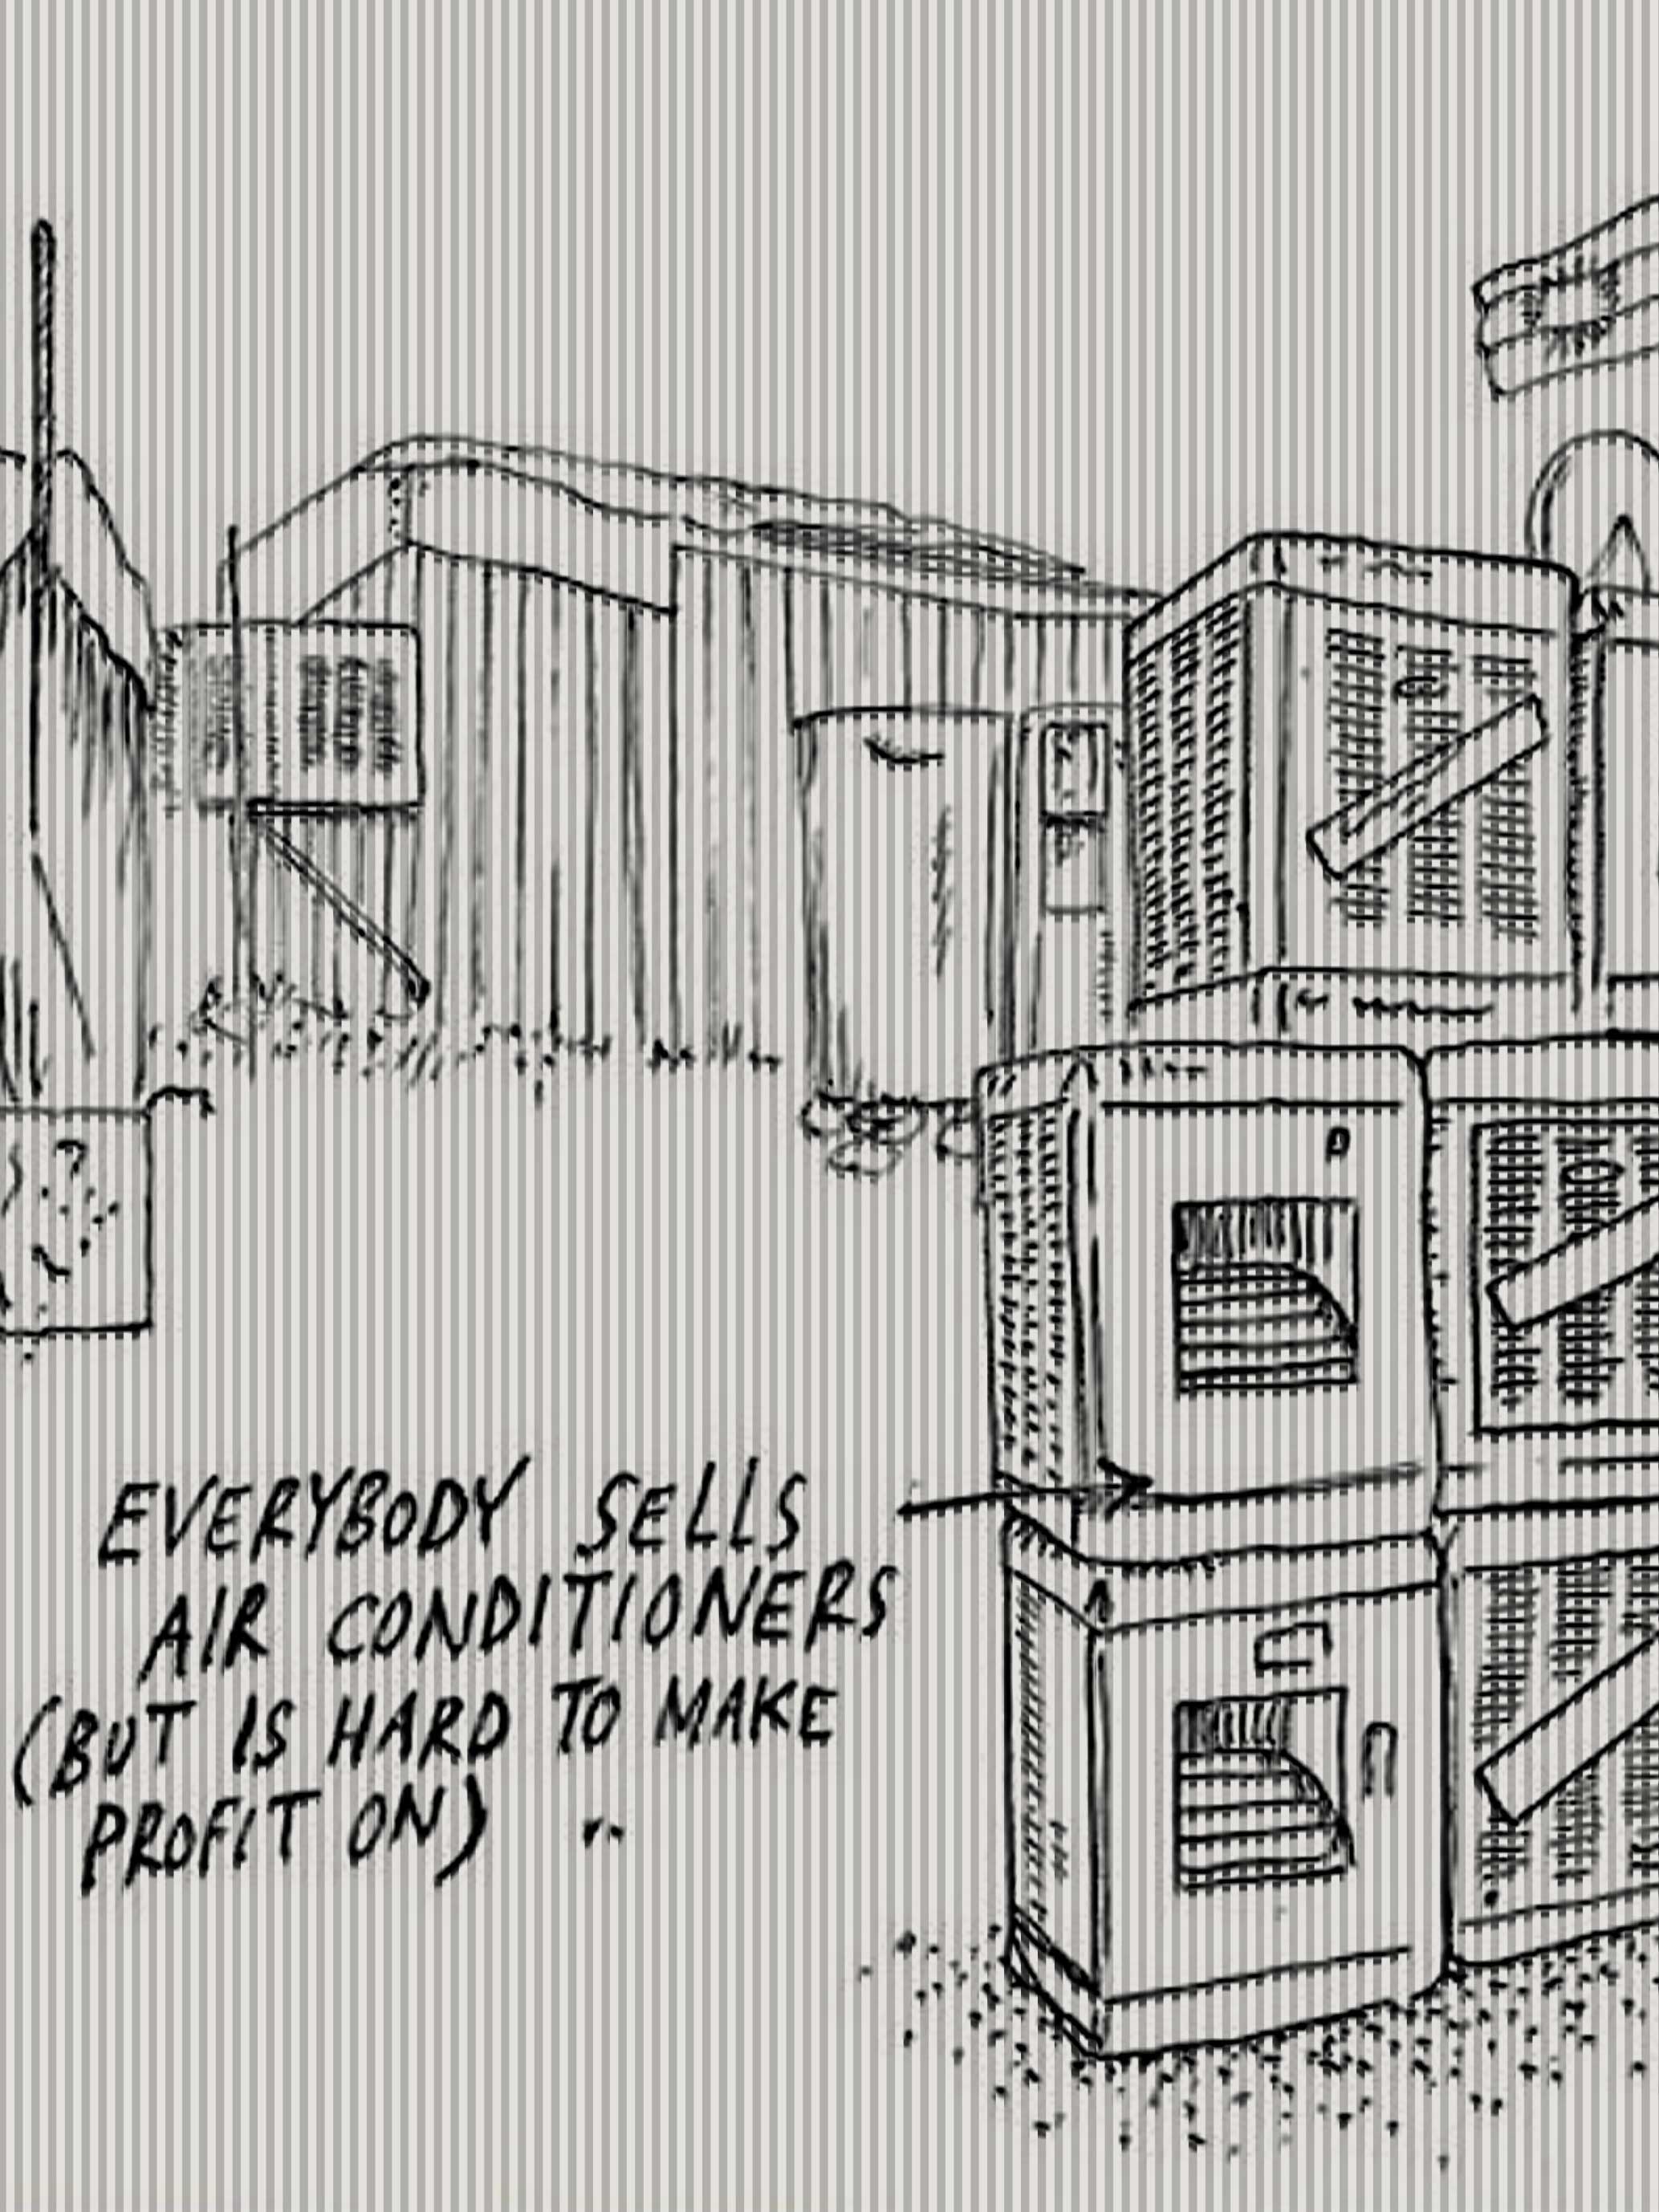 EVERYBODY SELLS
AIR CONDITIONERS
(BUT IS HARD TO MAKE
PROFIT ON) ..